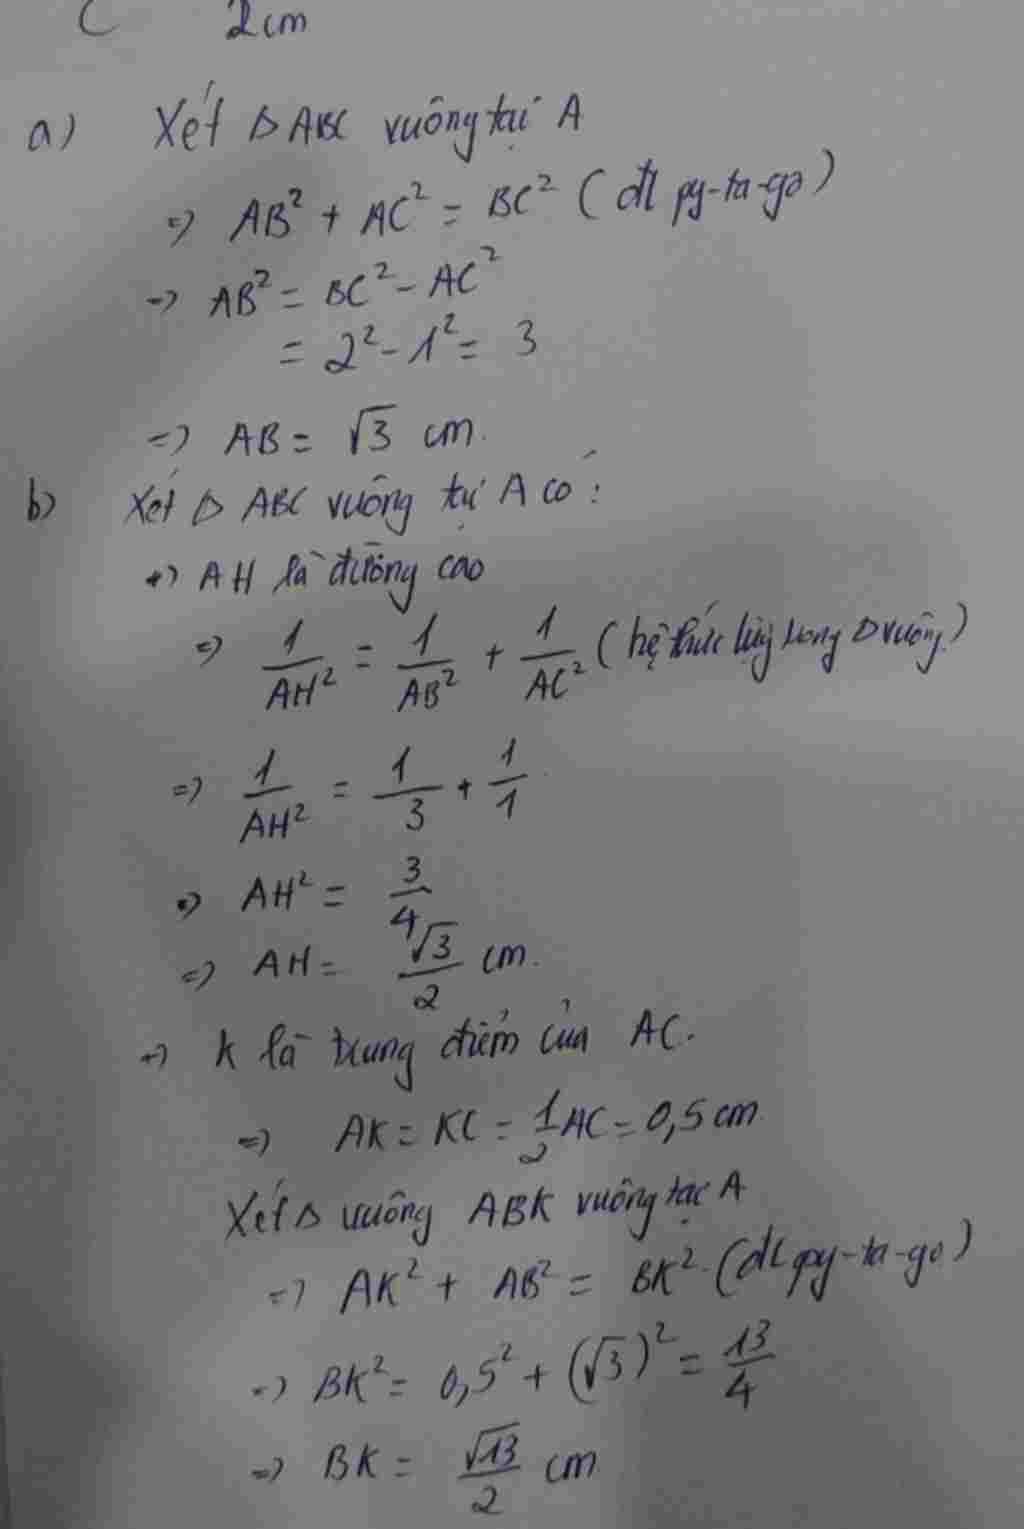 C 2cm
a) Xét Δ ABC vuông tại A
=> AB² + AC² = BC² (đl py-ta-go)
=> AB² = BC² - AC²
= 2² - 1² = 3
=> AB = √3 cm.
b) Xét Δ ABC vuông tại A có :
+) AH là đường cao
=> 1/AH² = 1/AB² + 1/AC² (hệ thức lượng trong Δ vuông)
=> 1/AH² = 1/3 + 1/1
=> AH² = 3/4
=> AH = √3/2 cm.
+) K là trung điểm của AC.
=> AK = KC = 1/2 AC = 0,5 cm
Xét Δ vuông ABK vuông tại A
=> AK² + AB² = BK² (đl py-ta-go)
=> BK² = 0,5² + (√3)² = 13/4
=> BK = √13/2 cm